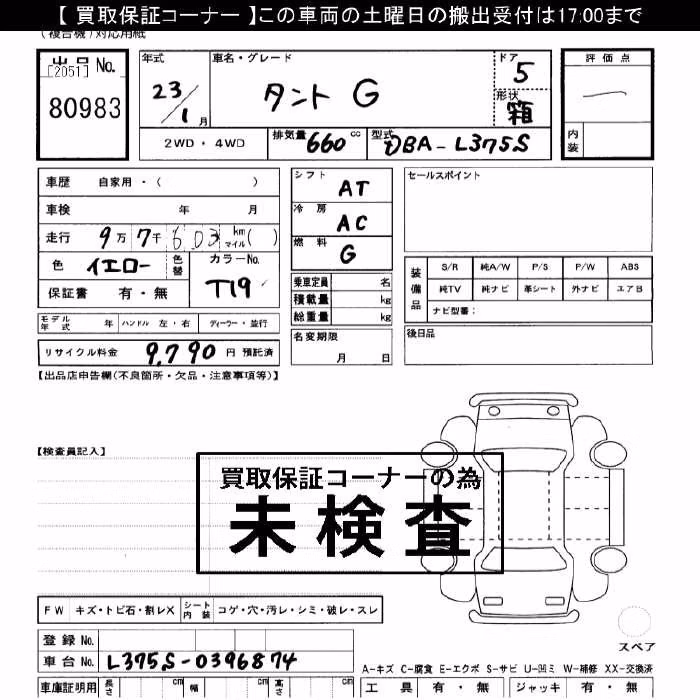 【 買取保証コーナー 】この車両の土曜日の搬出受付は17:00まで
(複合機)対応用紙
出品 No.
[2051]
80983
年式
23/1月
車名・グレード
タント G
ドア
5
形状
箱
評価点
—
内装
2WD ・ 4WD
排気量 660 cc
型式 DBA-L375S
車歴 自家用・( )
車検 年 月
走行 9万7千603 km マイル( )
色 イエロー 色替
カラーNo. T19
保証書 有・無
シフト AT
冷房 AC
燃料 G
乗車定員 名
積載量 kg
総重量 kg
名変期限
月 日
セールスポイント
装備品
S/R 純A/W P/S P/W ABS
純TV 純ナビ 革シート 外ナビ エアB
ナビ型番:
後日品
モデル年式 年 ハンドル 左・右 ディーラー・並行
リサイクル料金 9,790 円 預託済
【出品店申告欄(不良箇所・欠品・注意事項等)】
【検査員記入】
買取保証コーナーの為
未検査
FW キズ・トビ石・割レX シート内装 コゲ・穴・汚レ・シミ・破レ・スレ
登録 No.
車台 No. L375S-0396874
車庫証明用 長さ cm 幅 cm 高さ cm
スペア
A-キズ C-腐食 E-エクボ S-サビ U-凹ミ W-補修 XX-交換済
工具 有・無 ジャッキ 有・無